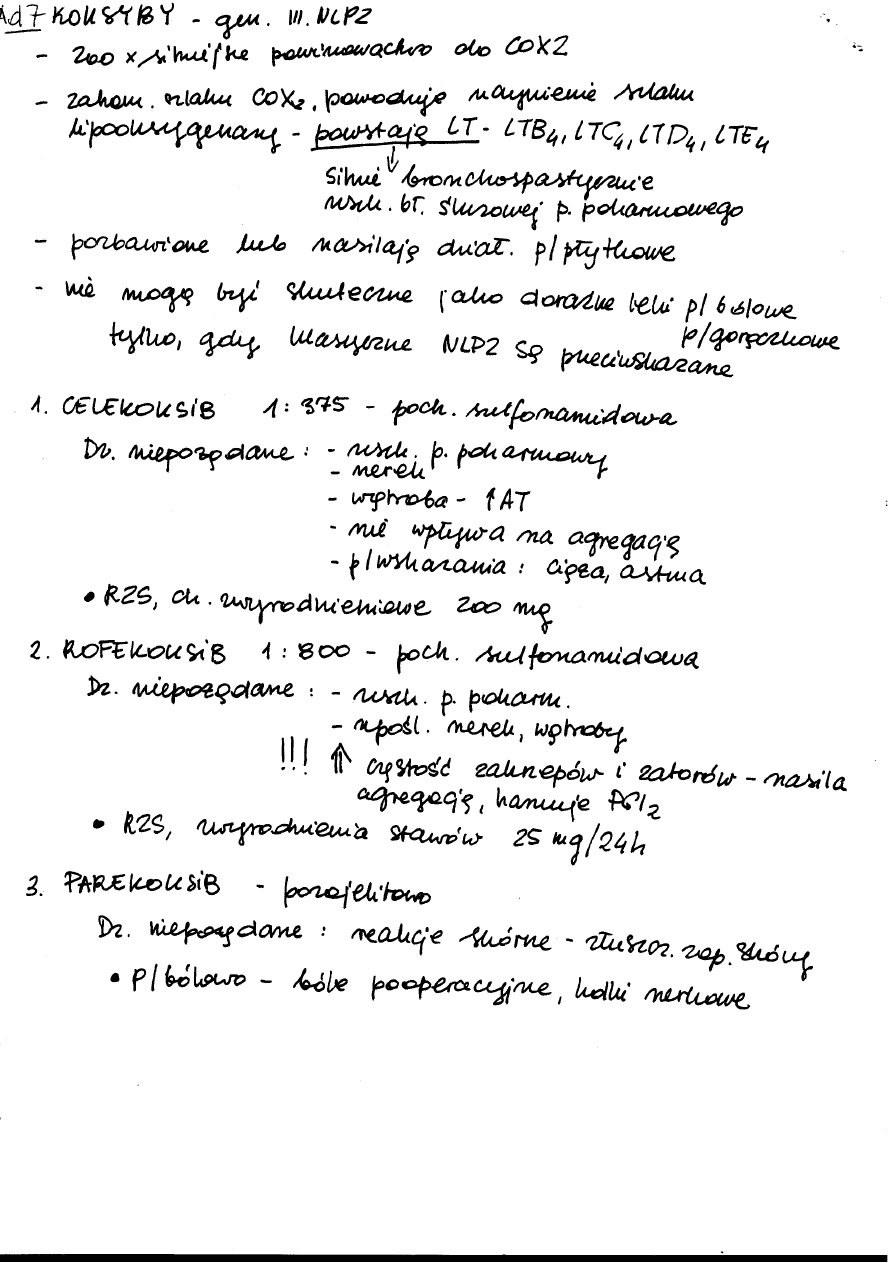 Ad7 KOKSYBY - gen. III. NLPZ
- 200 x silniejsze powinowactwo do COX2
- zaham. szlaku COX2, powoduje nasilenie szlaku
lipooksygenazy - powstają LT - LTB4, LTC4, LTD4, LTE4
silnie bronchospastycznie
uszk. bł. śluzowej p. pokarmowego
- pozbawione lub nasilają dział. p/płytkowe
- nie mogą być skuteczne jako doraźne leki p/bólowe
p/gorączkowe
tylko, gdy klasyczne NLPZ są przeciwskazane
1. CELEKOKSIB 1:375 - poch. sulfonamidowa
Dz. niepożądane : - uszk. p. pokarmowy
- nerek
- wątroba - ↑AT
- nie wpływa na agregację
- p/wskazania : ciąża, astma
• RZS, ch. zwyrodnieniowe 200 mg
2. ROFEKOKSIB 1:800 - poch. sulfonamidowa
Dz. niepożądane : - uszk. p. pokarm.
- upośl. nerek, wątroby
!!! ⇑ częstość zakrzepów i zatorów - nasila
agregację, hamuje PGI2
• RZS, zwyrodnienia stawów 25 mg/24h
3. PAREKOKSIB - pozajelitowo
Dz. niepożądane : reakcje skórne - złuszcz. zap. skóry
• p/bólowo - bóle pooperacyjne, kolki nerkowe